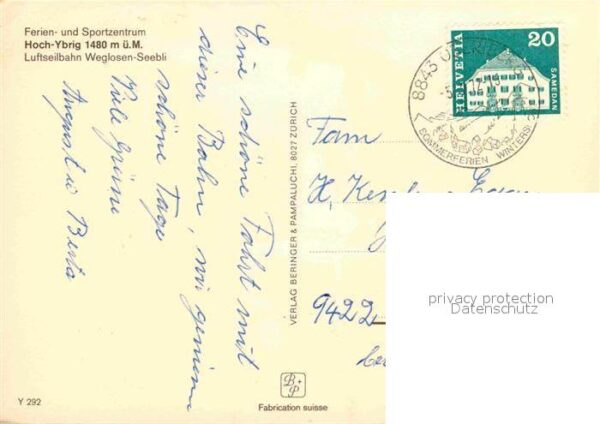 Ferien- und Sportzentrum
Hoch-Ybrig 1480 m ü.M.
Luftseilbahn Weglosen-Seebli
Eine schöne Fahrt mit
dieser Bahn, wir geniessen
schöne Tage
Viele Grüsse
August u Berta
VERLAG BERINGER & PAMPALUCHI, 8027 ZÜRICH
HELVETIA
20
SAMEDAN
8843
SOMMERFERIEN WINTERSPORT
Fam
H,
9422
privacy protection
Datenschutz
B+P
Y 292
Fabrication suisse